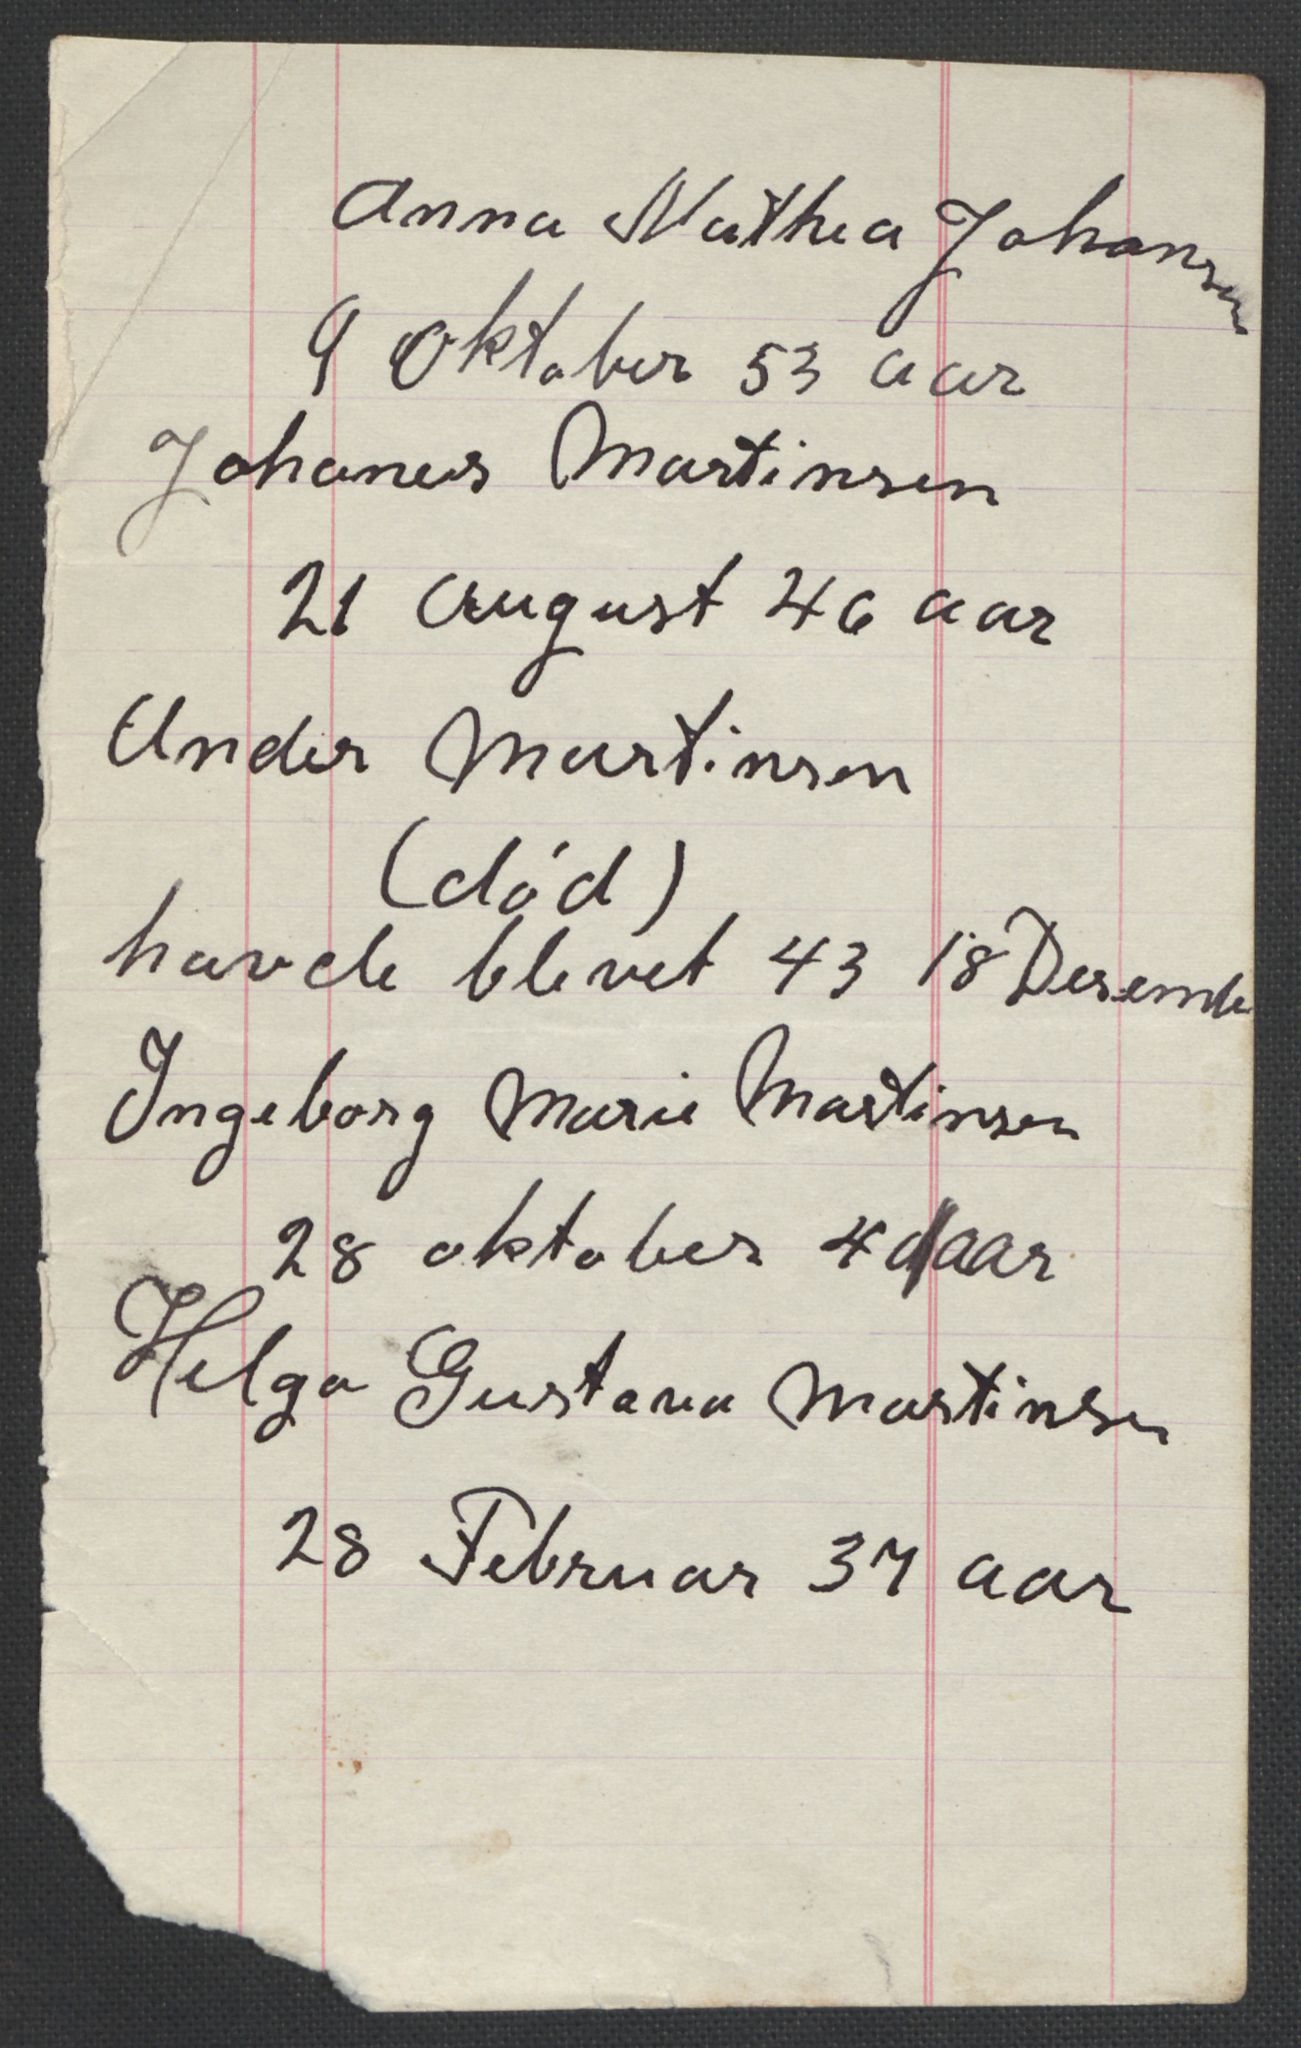 Anna Mathea Johansen
9 Oktober 53 aar
Johanes Martinsen
21 August 46 aar
Ander Martinsen
(död)
havde blevet 43 18 Desembe
Ingeborg Marie Martinsen
28 oktober aar
Helga Gustava Martinsen
28 Februar 37 aar